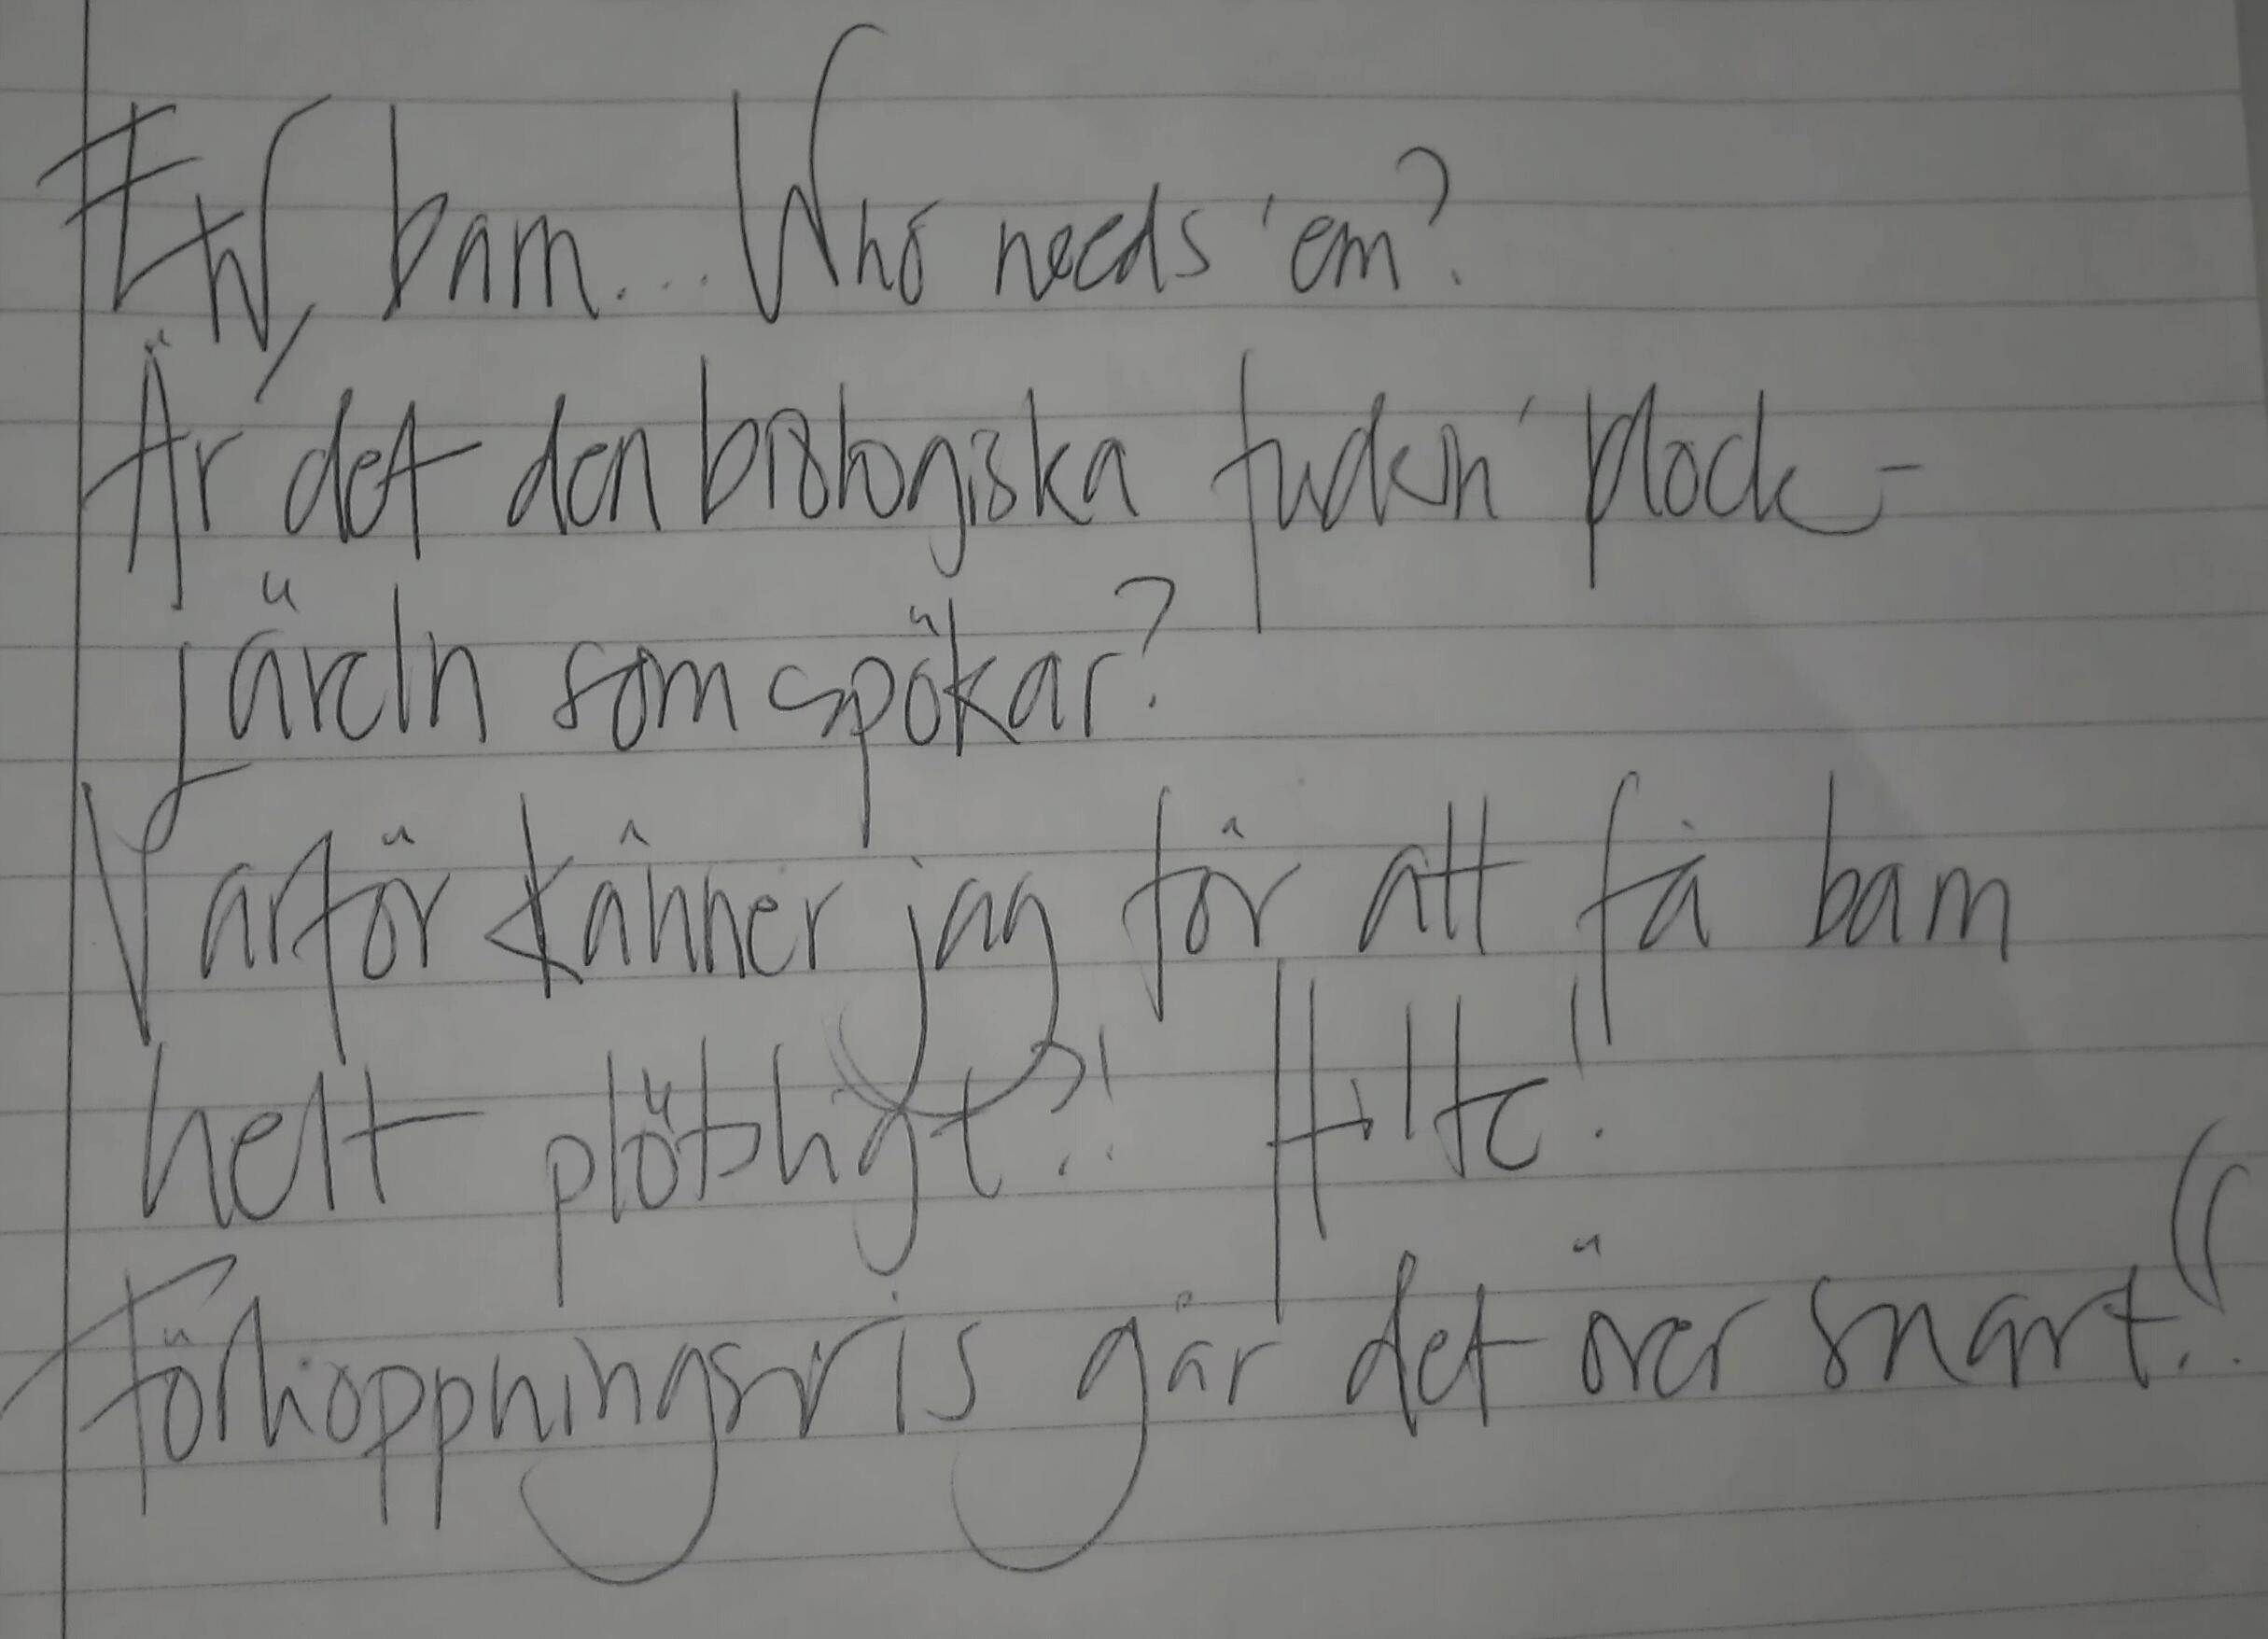 Ew, barn... Who needs 'em?
Är det den biologiska fuckin' klock-
järeln som spökar?
Varför känner jag för att få barn
helt plötsligt?! Hilfe!
Förhoppningsvis går det över snart!!